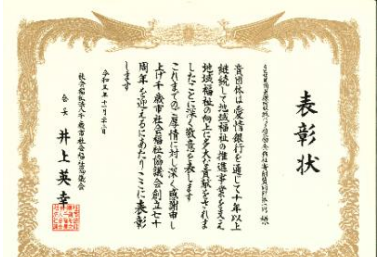 表彰状
貴団体は愛情銀行を通じて十年以上
継続して地域福祉の推進事業を支え
地域福祉の向上に多大な貢献をされま
したことに深く敬意を表します
これまでのご厚情に対し深く感謝申し
上げ千歳市社会福祉協議会創立七十
周年を迎えるにあたりここに表彰
します
令和五年十一月
社会福祉法人千歳市社会福祉協議会
会長 井上英幸